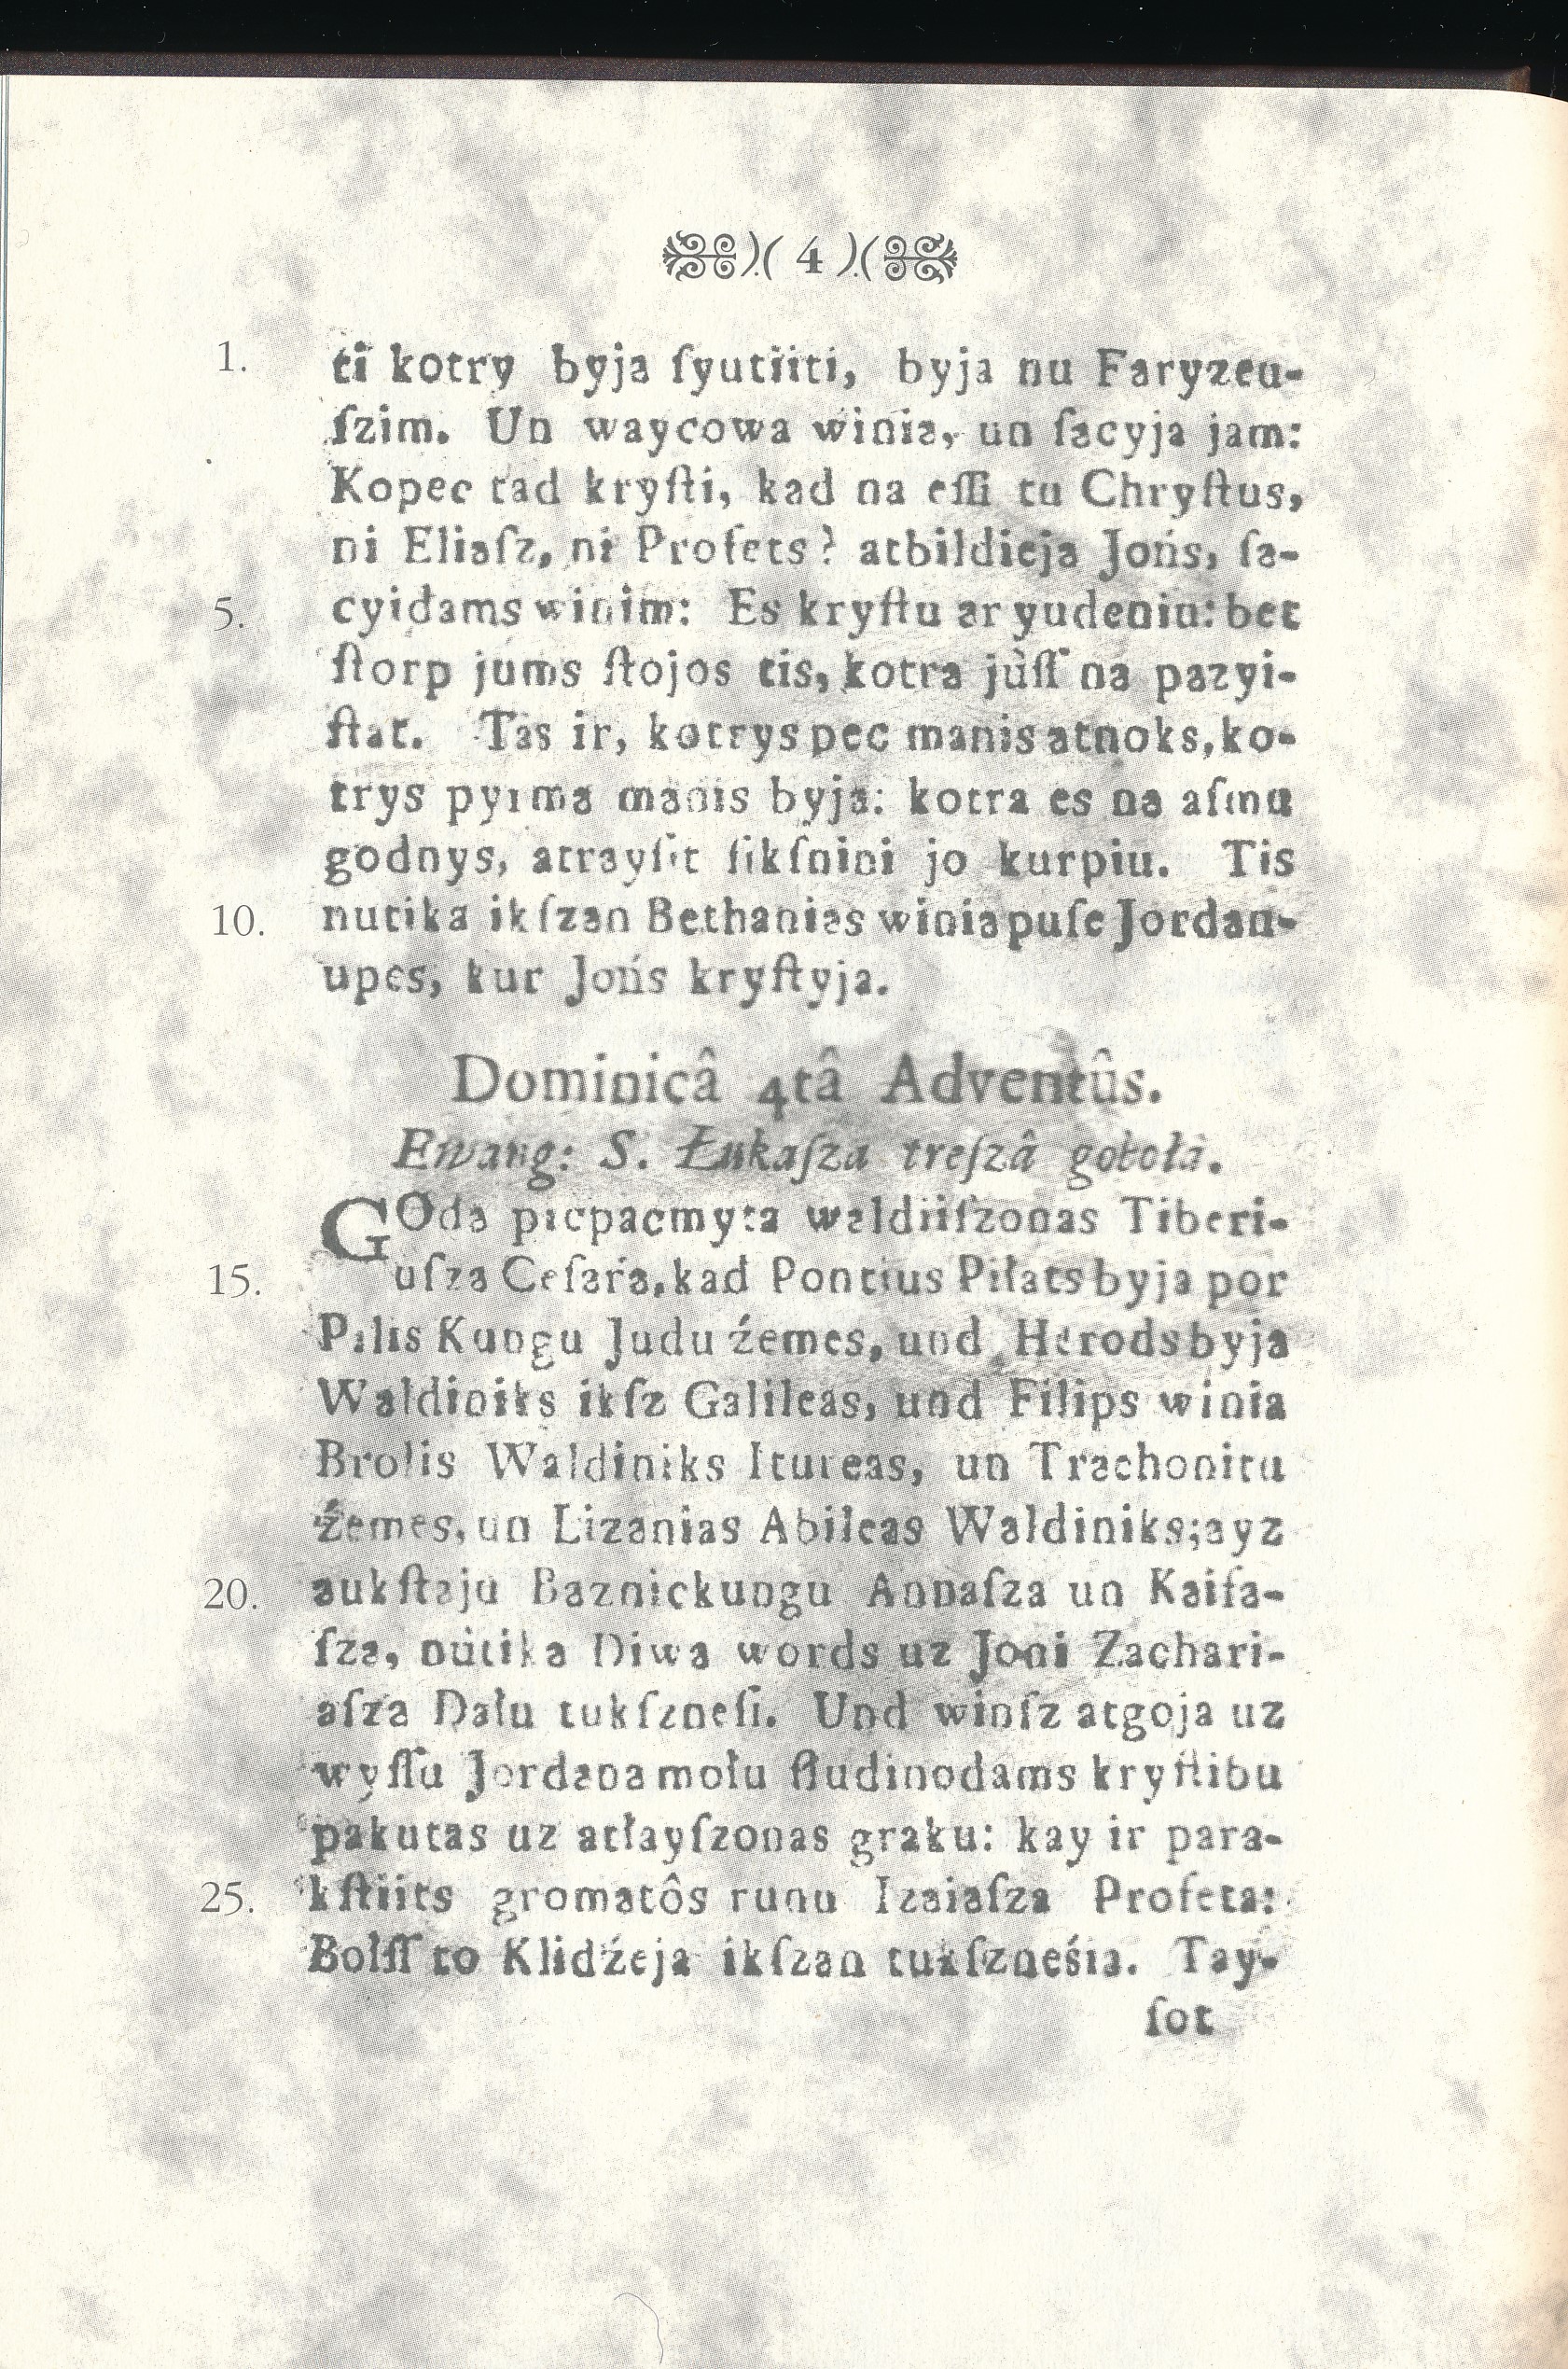 )( 4 )(
1. ti kotry byja ſyutiiti, byja nu Faryzeu-
ſzim. Un waycowa winia, un ſacyja jam:
Kopec tad kryſti, kad na eſſi tu Chryſtus,
ni Eliaſz, ni Profets? atbildieja Jońs, ſa-
5. cyidams winim: Es kryſtu ar yudeniu: bet
ſtorp jums ſtojos tis, kotra jùſſ na pazyi-
ſtat. Tas ir, kotrys pec manis atnoks, ko-
trys pyrma manis byja: kotra es na aſmu
godnys, atrayſit ſikſnini jo kurpiu. Tis
10. nutika ikſzan Bethanias winia puſe Jordan-
upes, kur Jońs kryſtyja.
Dominicâ 4tâ Adventûs.
Ewang: S. Łukaſza treſzâ gobołâ.
GOda picpacmyta waldiiſzonas Tiberi-
15. uſza Ceſara, kad Pontius Piłats byja por
Pilis Kungu Judu źemes, und Herods byja
Waldiniks ikſz Galileas, und Filips winia
Brolis Waldiniks Itureas, un Trachonitu
źemes, un Lizanias Abileas Waldiniks; ayz
20. aukſtaju Baznickungu Annaſza un Kaifa-
ſza, nutika Diwa words uz Joni Zachari-
aſza Dału tukſzneſi. Und winſz atgoja uz
wyſſu Jordana mołu ſludinodams kryſtibu
pakutas uz atłayſzonas graku: kay ir para-
25. kſtiits gromatôs runu Izaiaſza Profeta:
Bołſſ to Klidźeja ikſzan tukſzneśia. Tay-
ſot